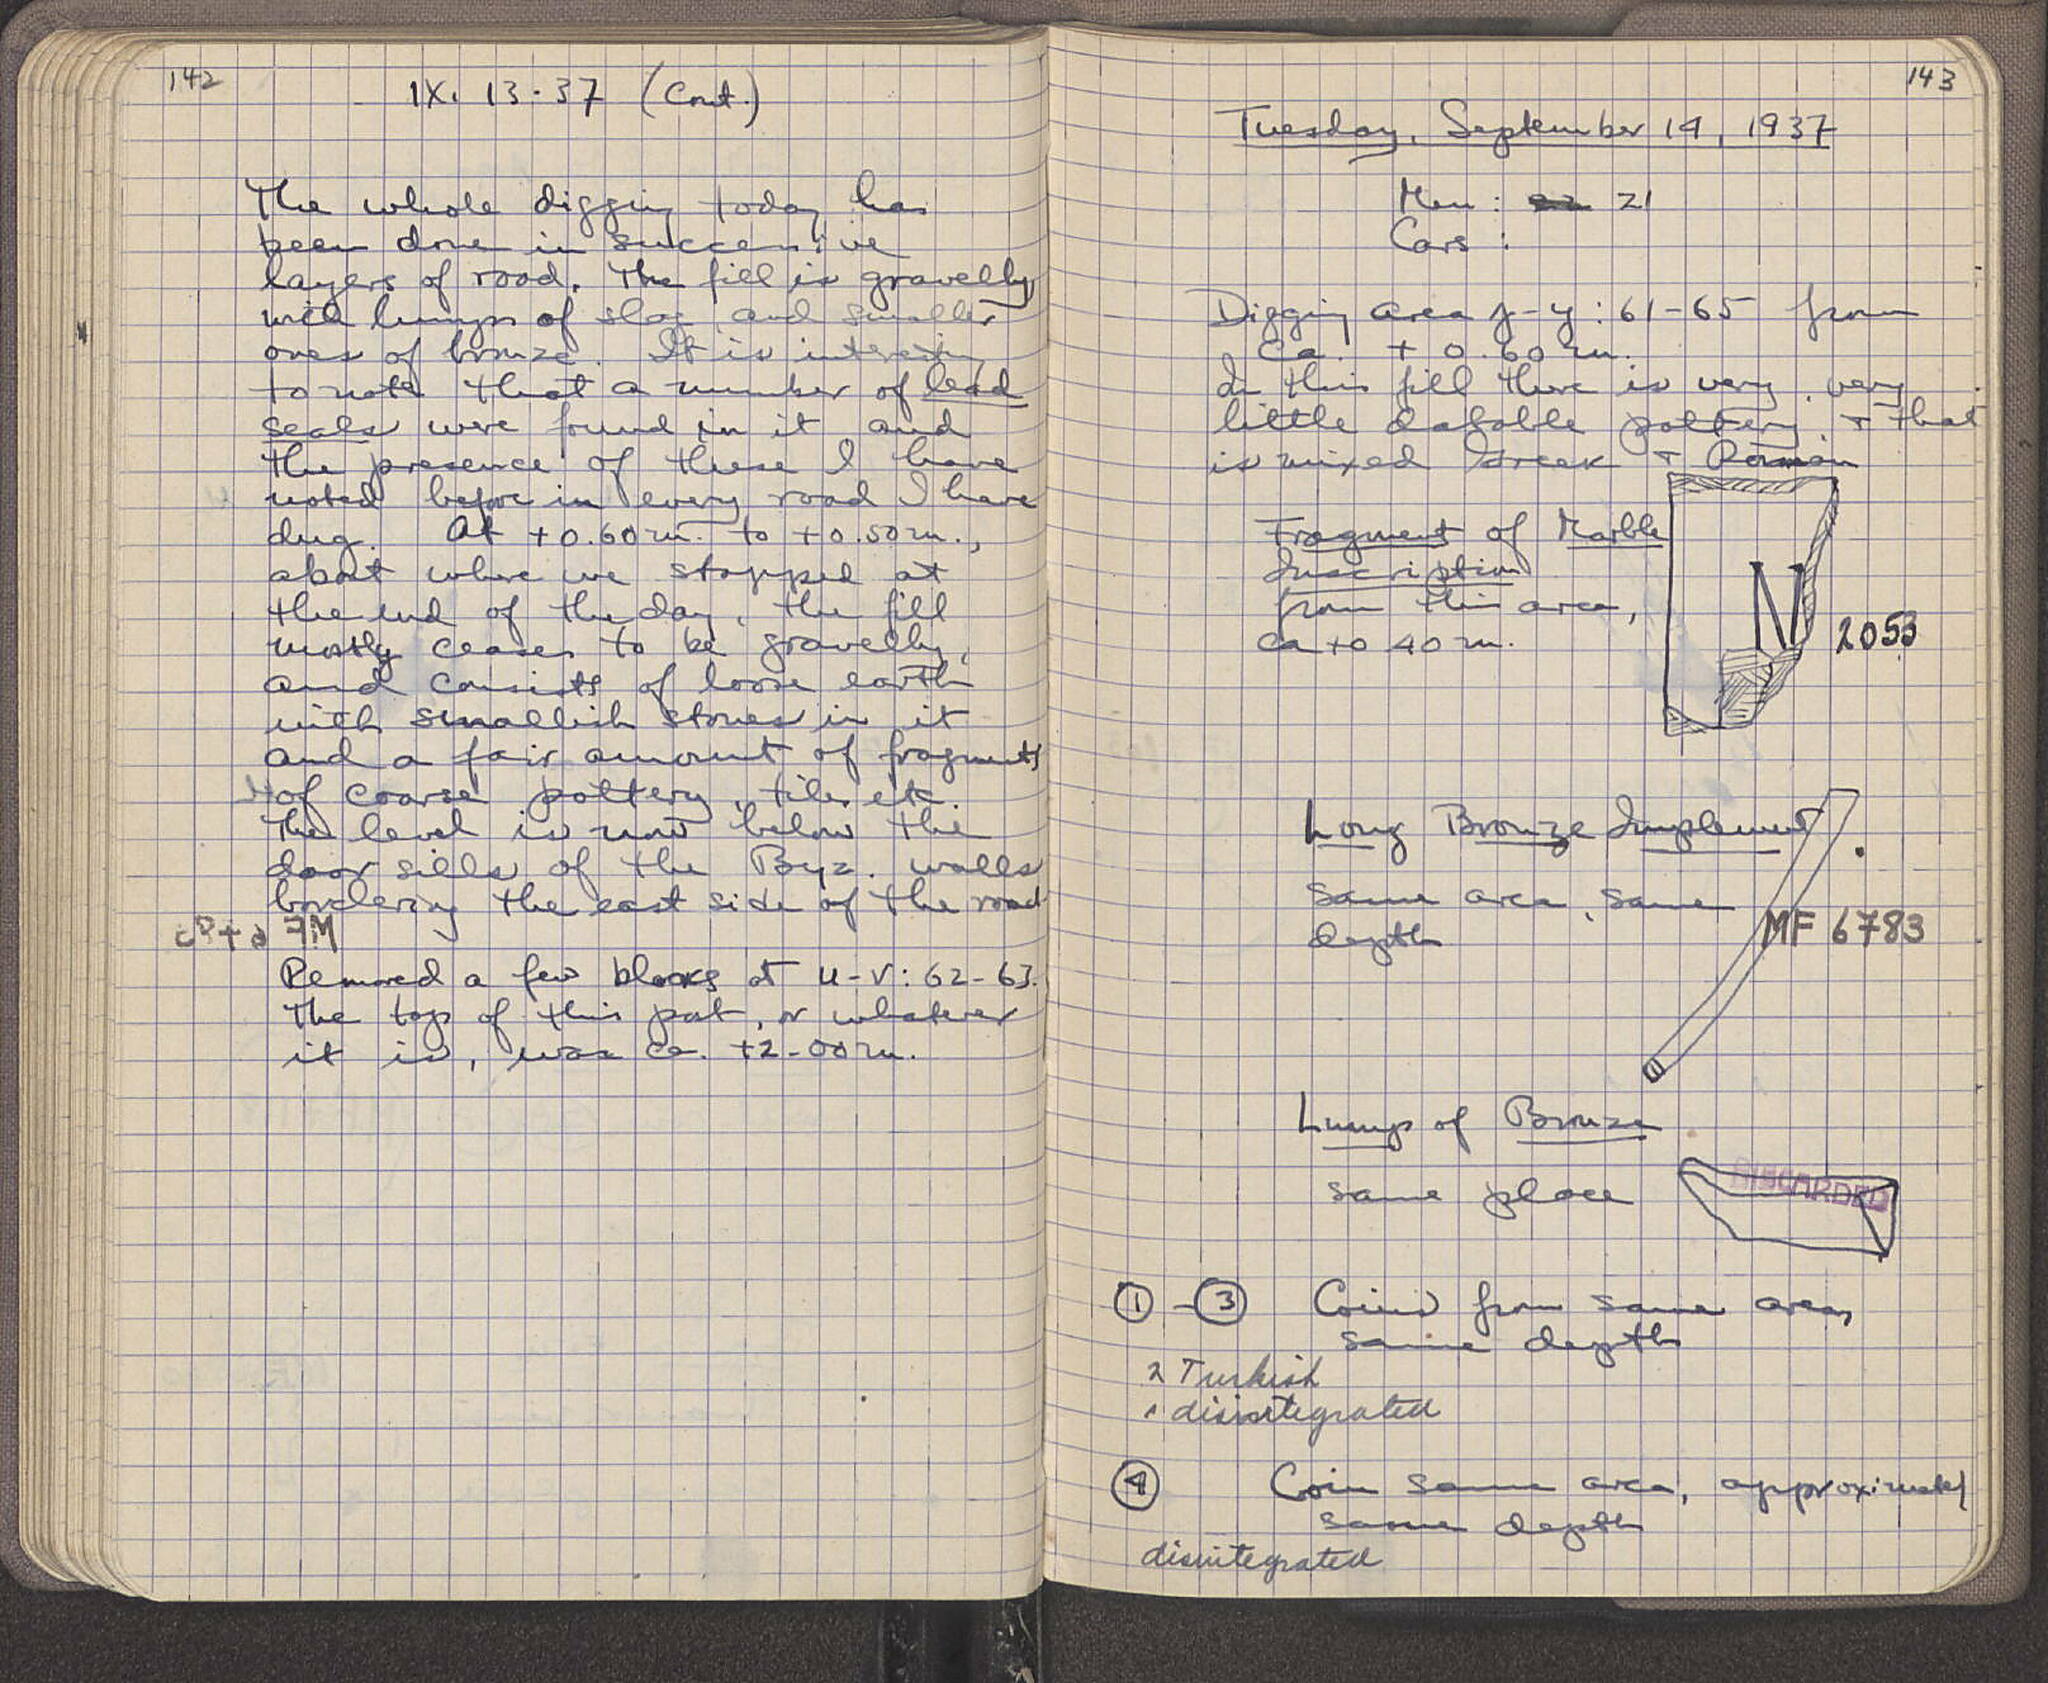 142
IX. 13. 37 (Cont.)
The whole digging today has
been done in successive
layers of road. The fill is gravelly
with lumps of slag and smaller
ones of bronze. It is interesting
to note that a number of lead
seals were found in it and
the presence of these I have
noted before in every road I have
dug. At +0.60 m. to +0.50 m.,
about where we stopped at
the end of the day, the fill
mostly ceases to be gravelly,
and consists of loose earth
with smallish stones in it
and a fair amount of fragments
of coarse pottery, tiles etc.
The level is now below the
door sills of the Byz. walls
bordering the east side of the road
Removed a few blocks at U-V: 62-63.
The top of this part, or whatever
it is, was ca. +2.00 m.
143
Tuesday, September 14, 1937
Men: 21
Cars:
Digging area y: 61-65 from
ca. +0.60 m.
In this fill there is very, very
little datable pottery, + that
is mixed Greek + Roman
Fragment of Marble
Inscription
from this area,
ca +0.40 m.
N
2053
Long Bronze Implement
same area, same
depth
MF 6783
Lump of Bronze
same place
DISCARDED
① - ③ Coins from same area,
same depth
2 Turkish
1 disintegrated
④ Coin same area, approximately
same depth
disintegrated